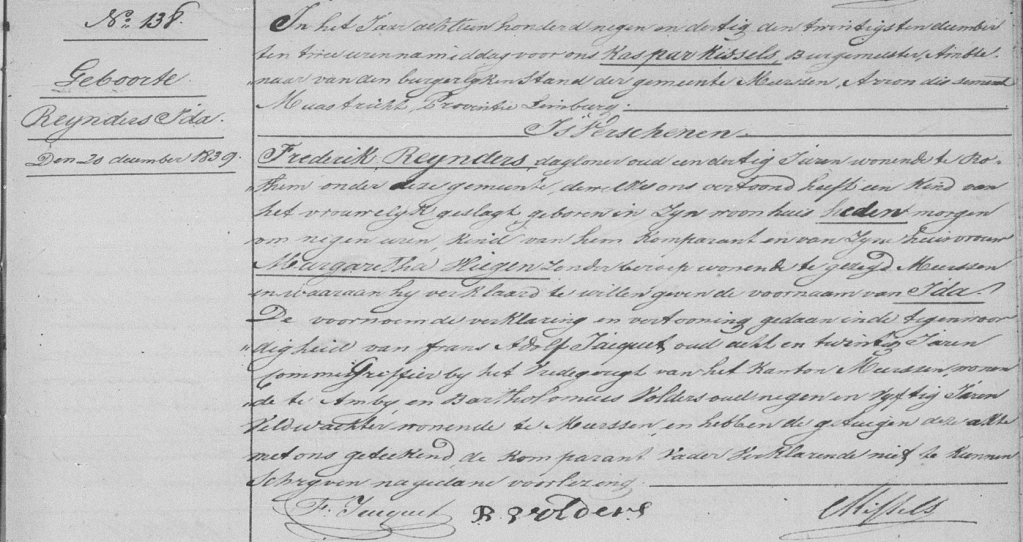 No. 138.
Geboorte
Reynders Ida.
Den 20 december 1839.
In het Jaar achttien honderd negen en dertig den twintigsten december
ten twee uren namiddag voor ons Kaspar Kissels, Burgemeester, Ambte-
naar van den burgerlyken Stand der gemeente Meerssen, Arrondissement
Maastricht, Provintie Limburg.
Is Verschenen
Frederik Reynders, dagloner oud een dertig Jaren wonende te Ro-
them onder deze gemeente, dewelke ons vertoond heeft een Kind van
het vrouwelyk geslagt, geboren in Zyn woonhuis heden morgen
om negen uren Kind van hem Komparant en van Zyne huisvrouw
Margaretha Hiegen Zonder beroep wonende te gezegd Meerssen
en waaraan hy verklaard te willen geven de voornaam van Ida.
De voornoemde verklaring en vertooning gedaan in de tegenwoor-
digheid van frans Adolf Jacquet, oud acht en twintig Jaren
Commis Greffier by het Vredegeregt van het Kanton Meerssen, wonen-
de te Amby en Bartholomeus Volders oud negen en vyftig Jaren
Veldwachter wonende te Meerssen, en hebben de getuigen deze akte
met ons geteekend, de Komparant Vader Verklarende niet te Kunnen
Schryven na gedane voorlezing.
F. Jacquet B. Volders Kissels